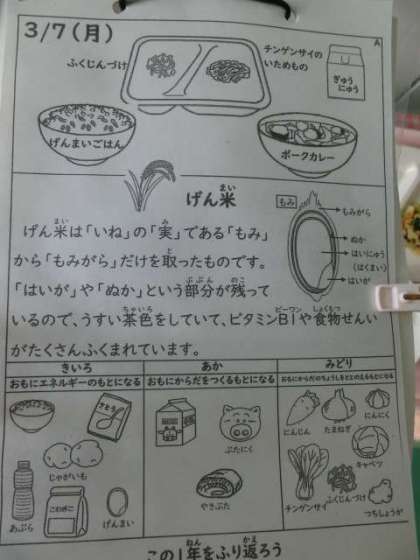 3/7(月)
A
ふくじんづけ
チンゲンサイの
いためもの
ぎゅう
にゅう
げんまいごはん
ポークカレー
げん米
まい
もみ
もみがら
ぬか
はいにゅう
(はくまい)
はいが
げん米は「いね」の「実」である「もみ」
まい
み
から「もみがら」だけを取ったものです。
と
「はいが」や「ぬか」という部分が残って
ぶぶん
のこ
いるので、うすい茶色をしていて、ビタミンB1や食物せんい
ちゃいろ
ビーワン
しょくもつ
がたくさんふくまれています。
きいろ
あか
みどり
おもにエネルギーのもとになる
おもにからだをつくるもとになる
おもにからだのちょうしをととのえるもとになる
さとう
じゃがいも
あぶら
こむぎこ
げんまい
ぶたにく
やきぶた
にんじん
たまねぎ
にんにく
キャベツ
チンゲンサイ
ふくじんづけ
つちしょうが
この1年をふり返ろう
ねん
かえ